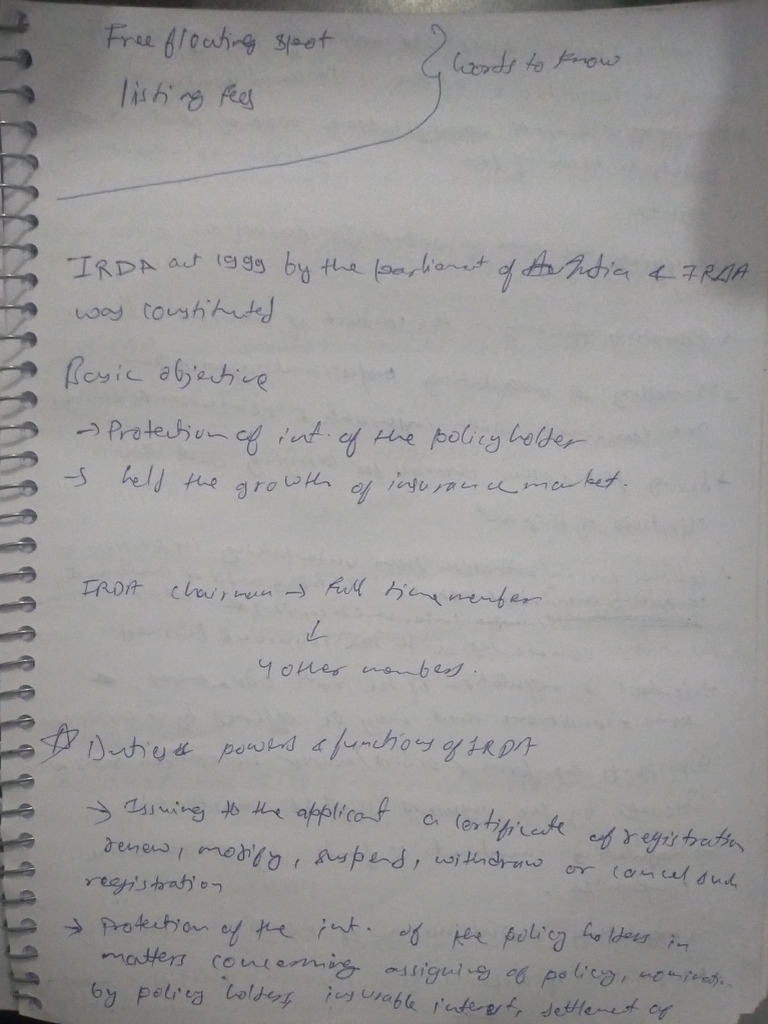 Free floating spot
listing fees
words to know
IRDA act 1999 by the parliament of India & IRDA
was constituted
Basic objective
→ Protection of int. of the policy holder
→ held the growth of insurance market.
IRDA chairman → full time member
↓
4 other members.
☆ Duties & powers & functions of IRDA
→ Issuing to the applicant a certificate of registration
renew, modify, suspend, withdraw or cancel such
registration
→ Protection of the int. of the policy holders in
matters concerning assigning of policy,
by policy holders, insurable interest, settlement of